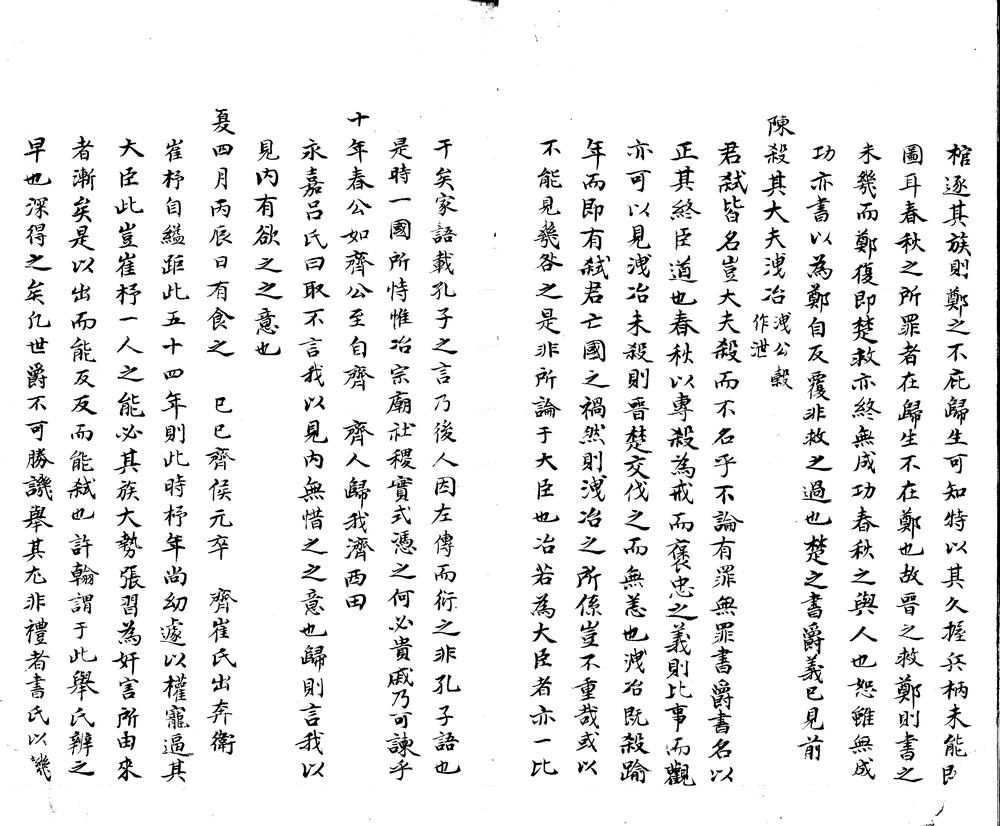 棺逐其族則鄭之不庇歸生可知特以其久握兵柄未能即
圖耳春秋之所罪者在歸生不在鄭也故晋之救鄭則書之
未幾而鄭復即楚救亦終無成功春秋之與人也恕雖無成
功亦書以為鄭自反覆非救之過也楚之書爵義已見前
陳殺其大夫洩冶洩公穀作泄
君弑皆名豈大夫殺而不名乎不論有罪無罪書爵書名以
正其終臣道也春秋以專殺為戒而褒忠之義則比事而觀
亦可以見洩冶未殺則晋楚交伐之而無恙也洩冶既殺踰
年而即有弑君亡國之禍然則洩冶之所係豈不重哉或以
不能見幾咎之是非所論于大臣也冶若為大臣者亦一比
干矣家語載孔子之言乃後人因左傳而衍之非孔子語也
是時一國所恃惟冶宗廟社稷實式憑之何必貴戚乃可諫乎
十年春公如齊公至自齊　齊人歸我濟西田
永嘉呂氏曰取不言我以見内無惜之之意也歸則言我以
見内有欲之之意也
夏四月丙辰日有食之　己巳齊侯元卒　齊崔氏出奔衛
崔杼自縊距此五十四年則此時杼年尚幼遽以權寵逼其
大臣此豈崔杼一人之能必其族大勢張習為奸言所由來
者漸矣是以出而能反反而能弑也許翰謂于此舉氏辨之
早也深得之矣凡世爵不可勝譏舉其尤非禮者書氏以譏